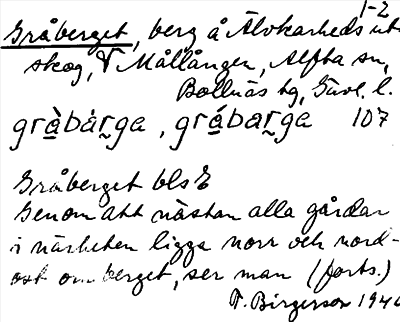 1-2
Gråberget, berg å Älvkarheds ut-
skog, V Mållången, Alfta sn,
Bollnäs tg, Gävl. l.
gràbàr̰ga, grábar̰ga 107
Gråberget bls E
Genom att nästan alla gårdar
i närheten ligga norr och nord-
ost om berget, ser man (forts.)
T. Birgerson 1940